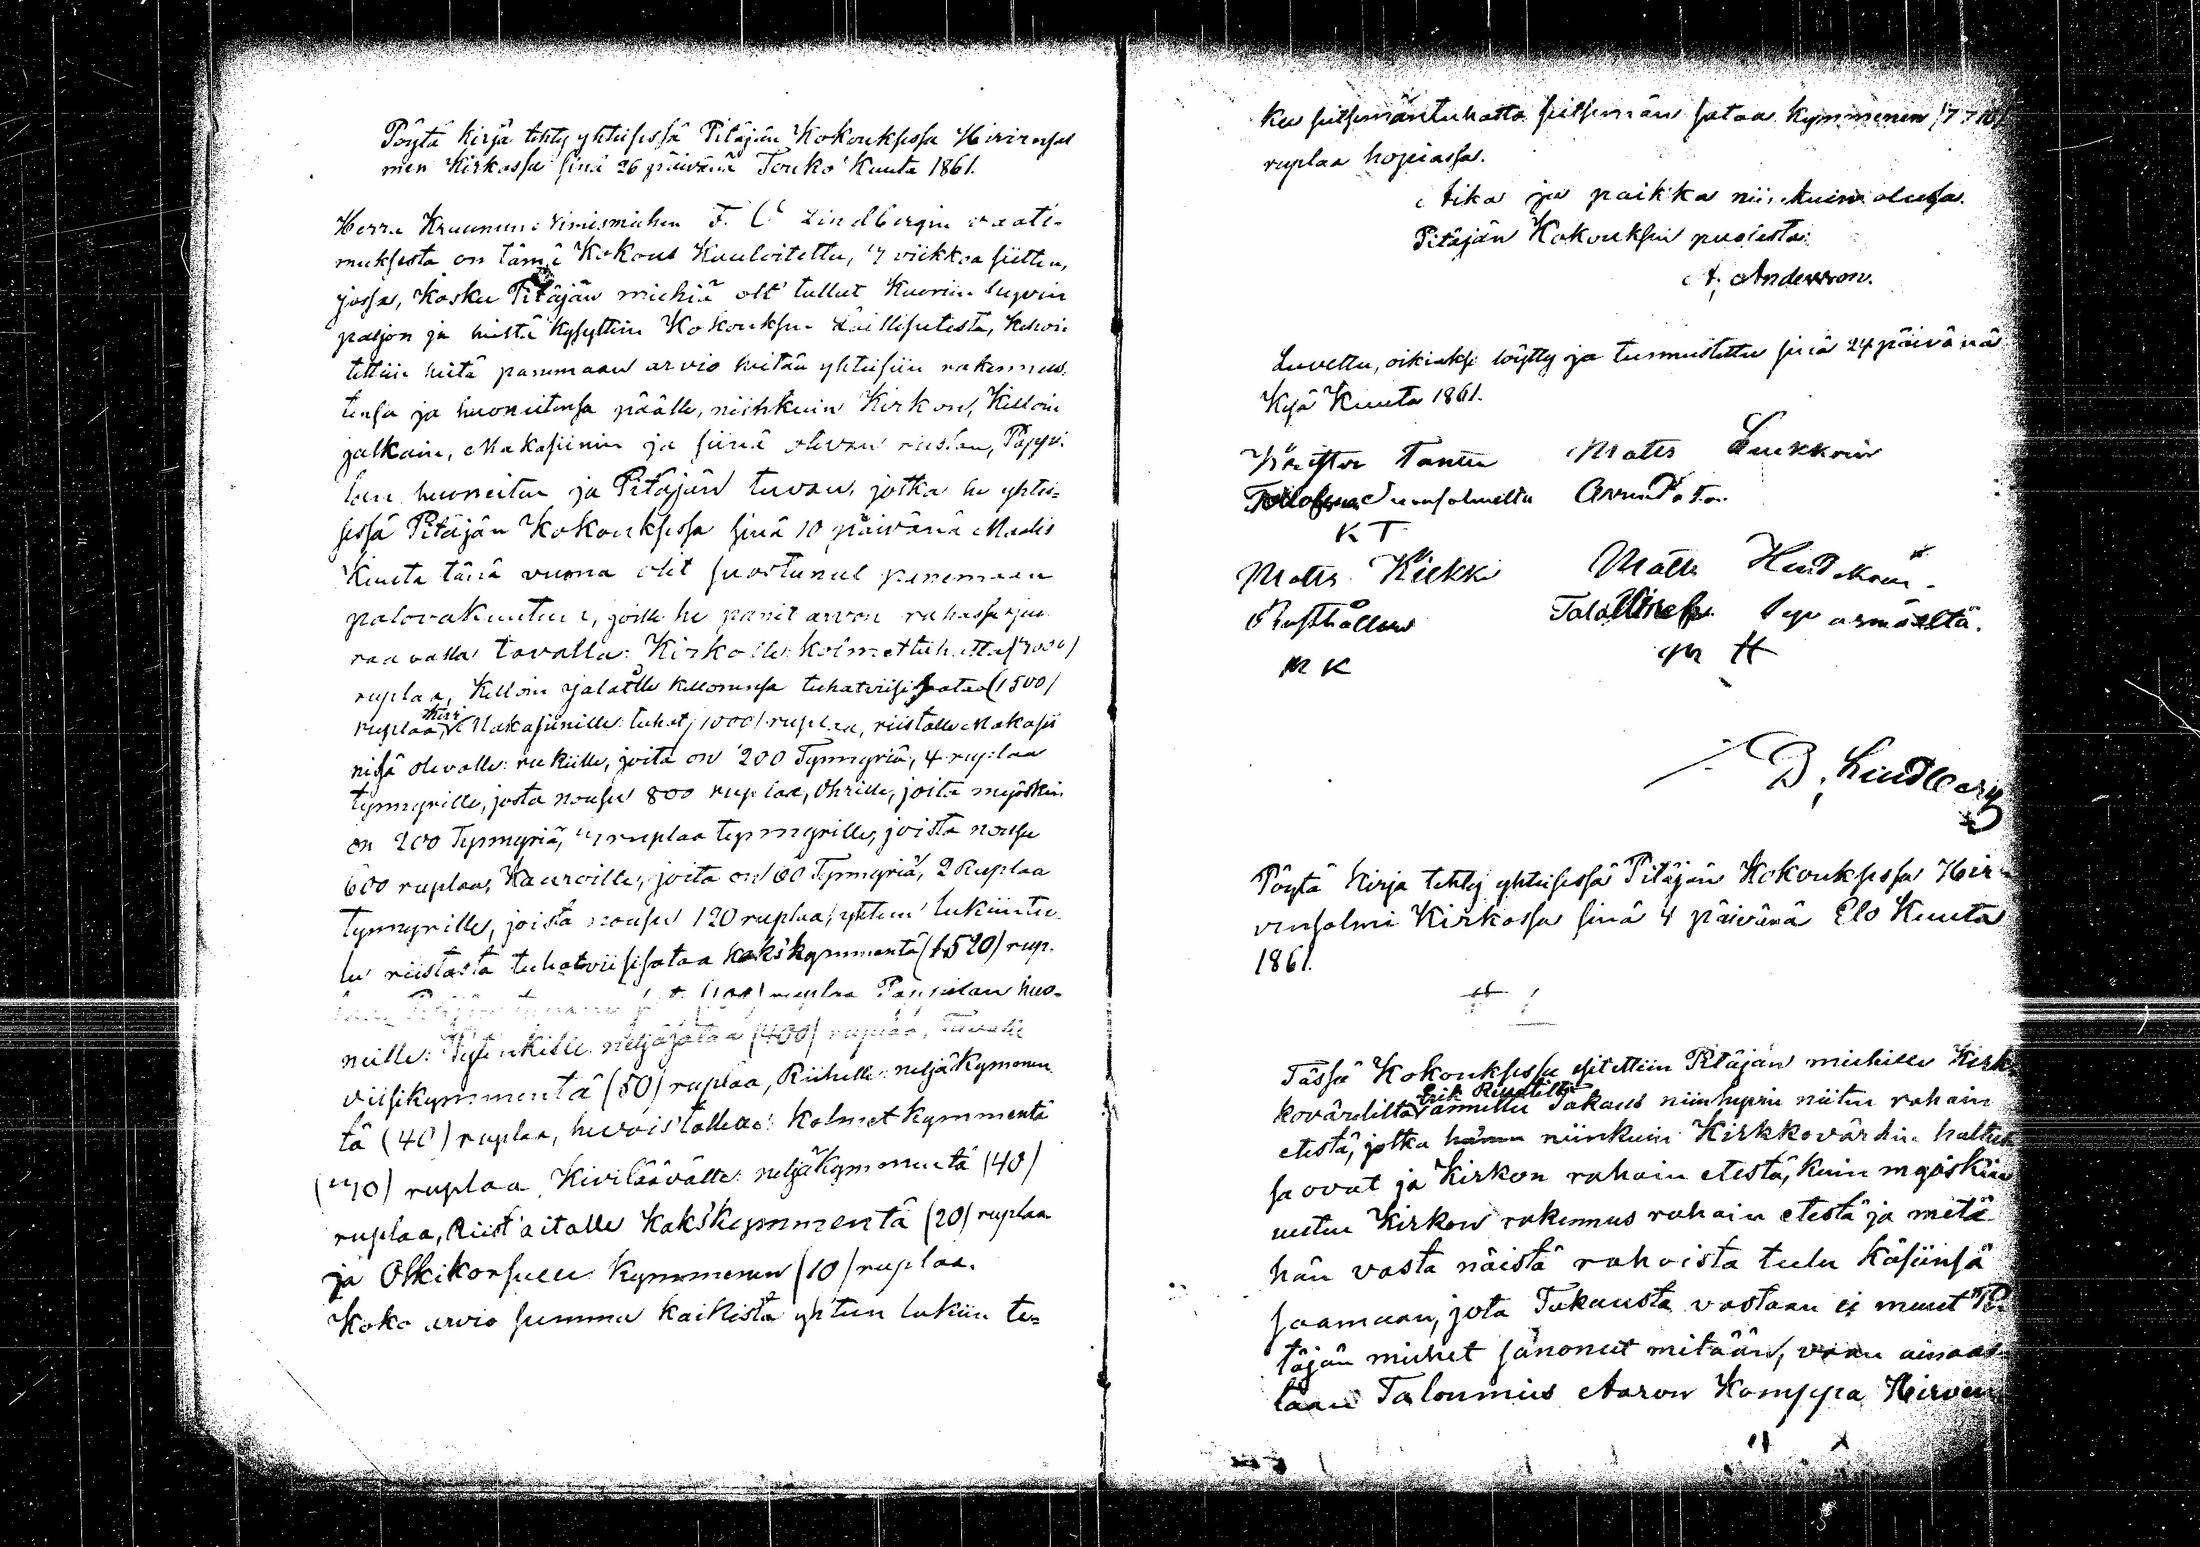 Pöytä Kirja tehty yhteisessä Pitäjän Kokouksessa Hirvensal
men Kirkossa sinä 26 päivänä Touko Kuuta 1861.
Herra Kruunun nimismiehen F. C Lindbergin vaati-
muksesta on tämä Kokous Kuuloitettu, 7 viikkoa siitten,
jossa, koska Pitäjän miehiä olt tullut Kuoriin hyvin
paljon ja heiltä kysyttiin Kokouksen laillisutesta, kehoi-
tettiin heitä panemaan arvio heitän yhteisiin rakennus-
tensa ja huoneitensa päälle, niinkuin Kirkon, Kelloin
jalkain, Makasiinin ja siinä olevan riistan, Pappi-
lan huoneitten ja Pitäjän tuvan, jotka he yhtei-
sessä Pitäjän Kokouksessa sinä 10 päivänä Maalis
Kuuta tänä vuona olit suostunut panemaan
palovakuutteen, joille he panit arvon rahassa
raavalla tavalla: Kirkolle: kolmettuhatta (3000)
ruplaa, Kelloin jalalle kelloinensa tuhatviisisataa (1500)
ruplaa, Kivi Makasiinille: tuhat, 1000/ ruplaa, riistalle Makasii
nissä olevalle: rukiille, joita on 200 Tynnyriä, 4 ruplaa
tynnyrille, josta nousee 800 ruplaa, Ohrille, joita myöskin
on 200 Tynnyriä, 3 ruplaa tynnyrille, joista nousee
600 ruplaa, Kauroille, joita on 60 Tynnyriä, 2 Ruplaa
tynnyrille, joista nousee 120 ruplaa, yhteen lukiintu-
lu riistasta tuhatviisisataa kakskymmentä (1520) rup.
(100) ruplaa Pappilan huo-
neille: neljäsataa (400) ruplaa, Tuvalle
viisikymmentä (50) ruplaa, Riihelle neljäkymmen
tä (40) ruplaa, hevoistallille: kolmetkymmentä
(30) ruplaa Kiviläävälle: neljäkymmentä (40)
ruplaa, Riist aitalle kakskymmentä (20) ruplaa
ja Olkikorsuu kymmenen (10) ruplaa.
Koko arvio summa kaikista yhteen lukiin te-
ku seitsemäntuhatta seitsemän sataa kymmenen (7710)
ruplaa hopiassa.
Aika ja paikka niinkuin oleva.
Pitäjän Kokouksen puolesta:
A. Andersson.
Luvettu, oikiaksi löytty ja tunnustettu sinä 24 päivänä
Kesä Kuuta 1861.
Krister Tanttu Matts Luukkoin
K T
Matts Kiekki Matts Heiskain
Rusthollari Talollinen
M K M H
D. Lindberg
Pöytä Kirja tehty yhteisessä Pitäjän Kokouksessa Hir-
vensalmi Kirkossa sinä 4 päivänä Elo Kuuta
1861.
§ 1
Tässä Kokouksessa esitettiin Pitäjän miehille Kirk
kovärdilta Erik annettu Takaus niinhyvin niiten rahain
etestä, jotka hänen niinkuin Kirkkovärdin haltus
sa ovat ja Kirkon rahain etestä, kuin myöskin
uuten Kirkon rakennus rahain etestä ja mitä
hän vasta näistä rahoista tulee käsiinsä
saamaan, jota Takausta vastaan ei muut Pi
täjän miehet sanonut mitään, vaan ainoas
taan Talonmies Aaron Komppa Hirven